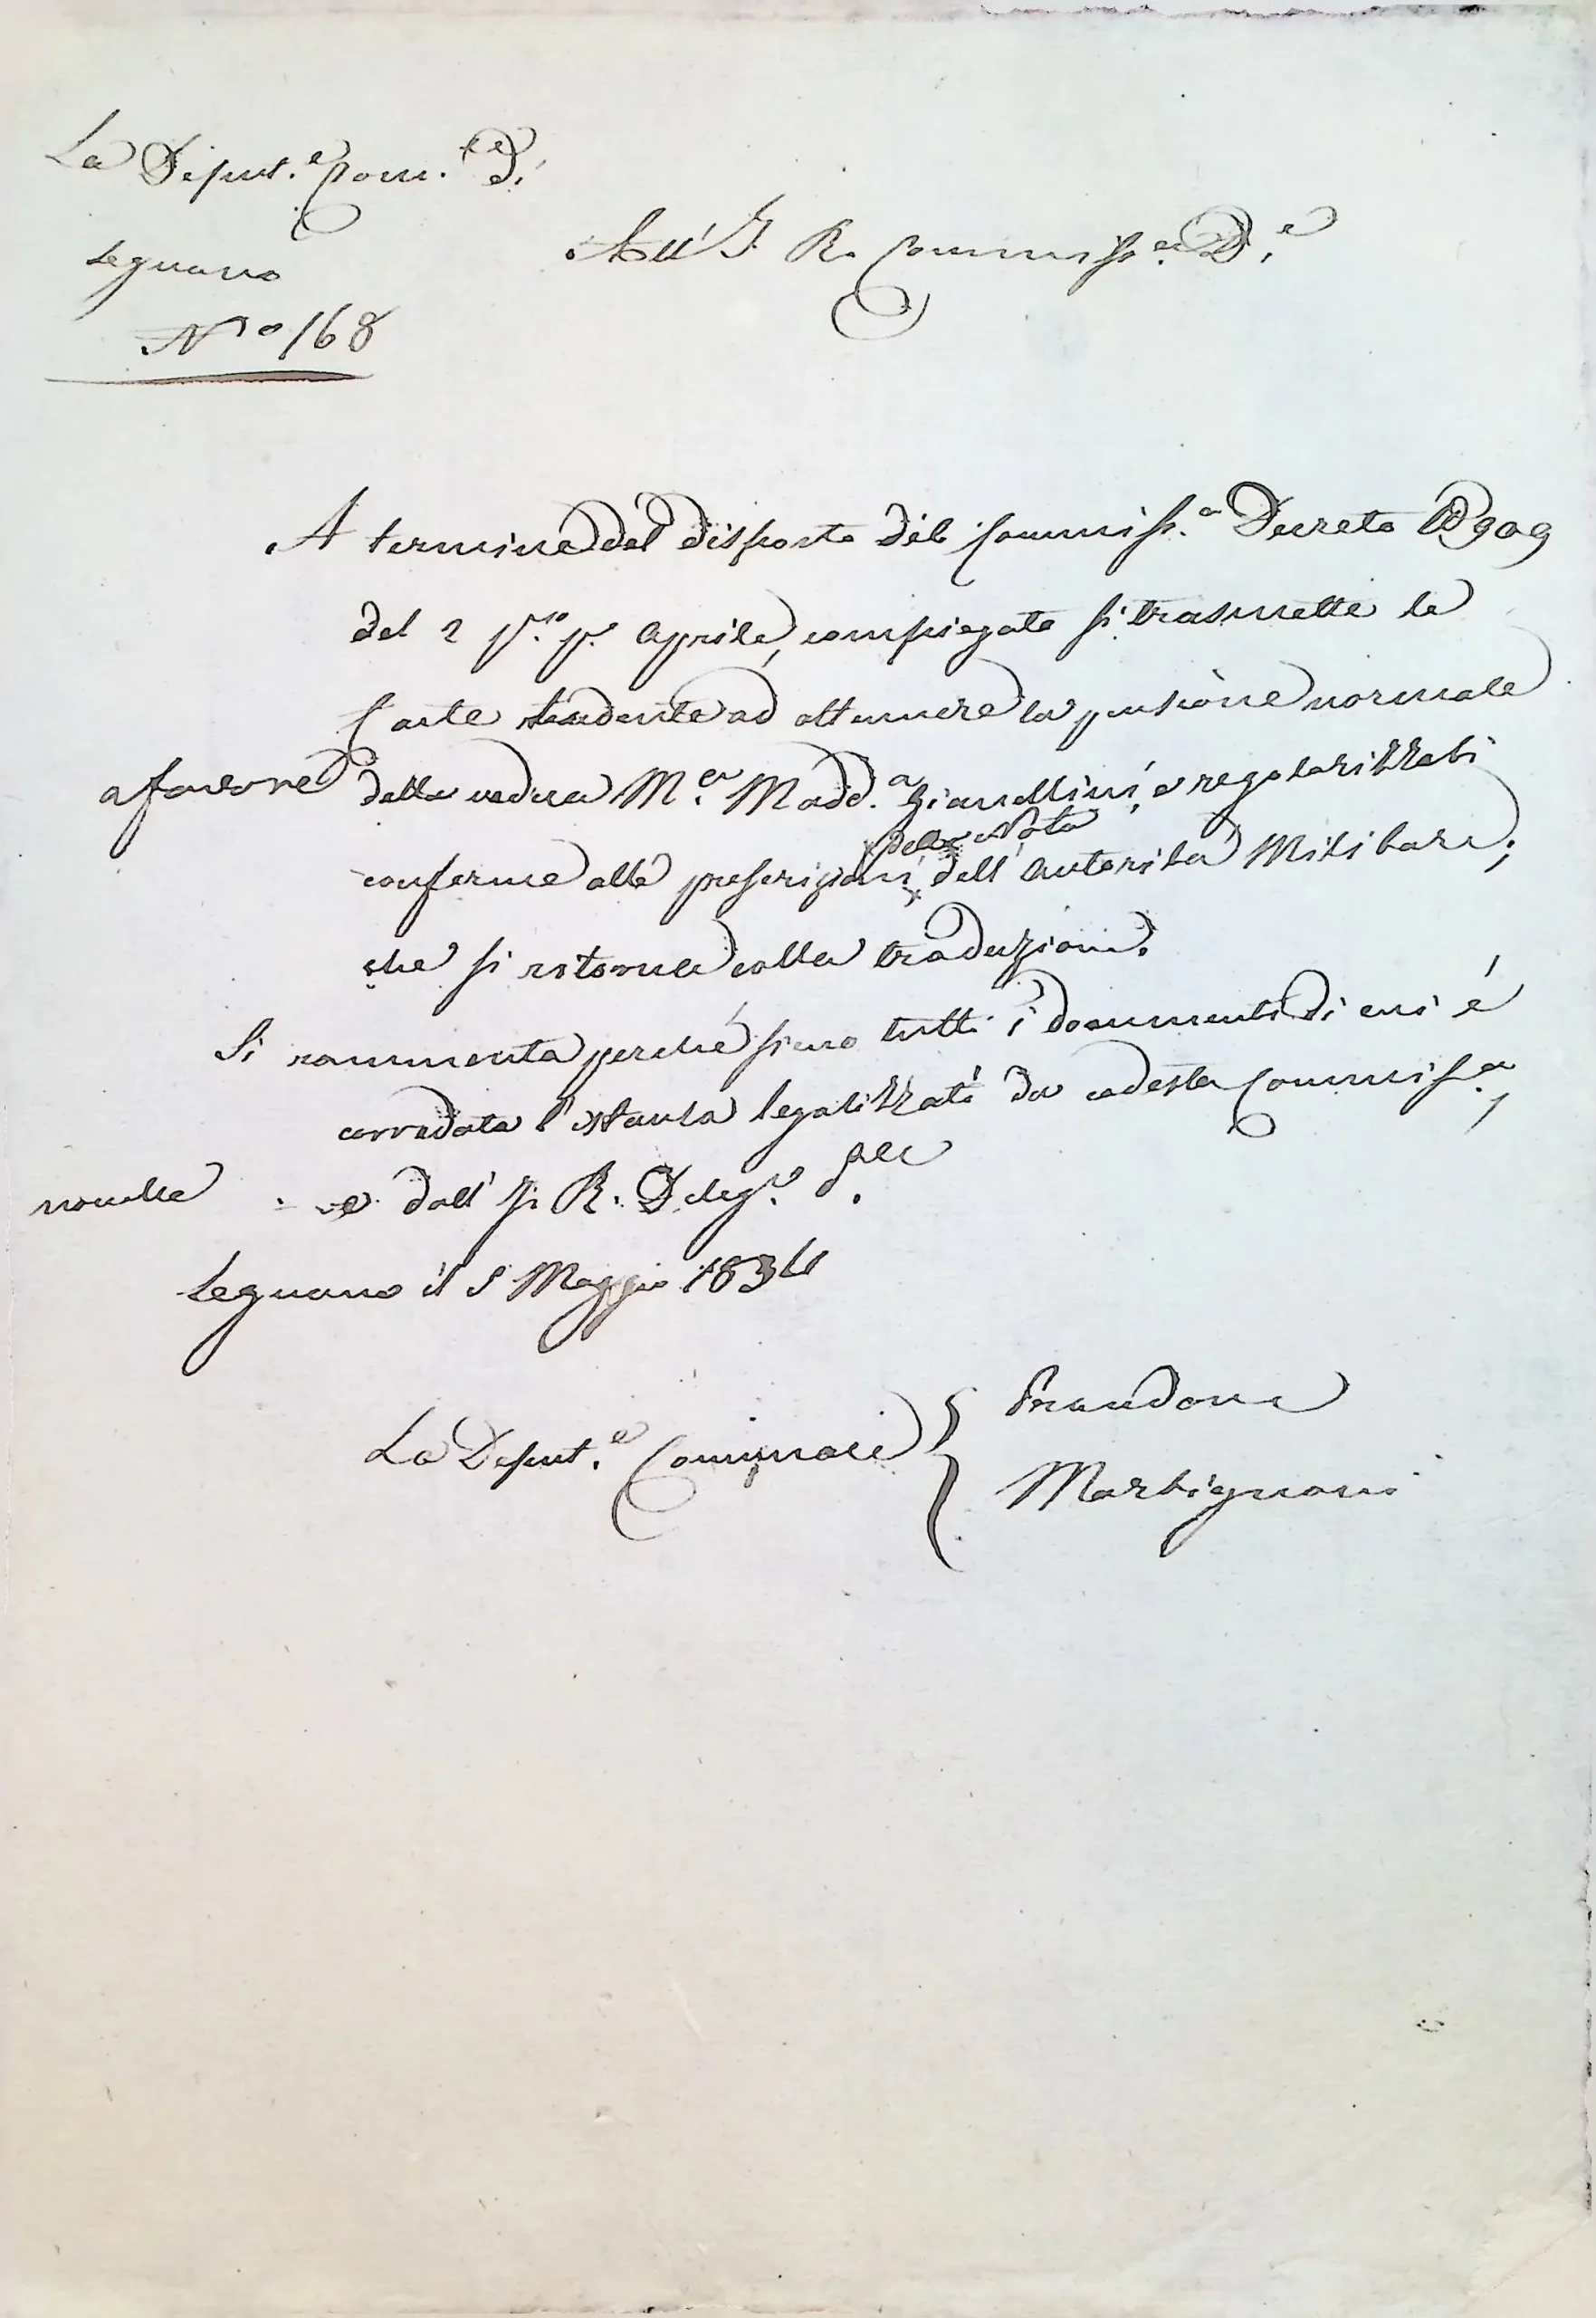 La Deput.e Com.le di
Legnano
N.ro 168
All' I. R. Commiss.a D.e
A termine del disposto del Commiss.a Decreto 909
del 2 p.o p.o Aprile, compiegate si trasmette le
Carte tendente ad ottenere la pensione normale
a favore della vedova M.a Madd.a Gianellini, e regolarizzati
della Nota
conforme alle prescrizioni dell' Autorità Militare;
che si ritorna colla traduzione.
Si rammenta perché sieno tutti i documenti di cui é
corredata l'istanza legalizzati da codesta Commiss.a
nonche e dall' I. R. Deleg.e
Legnano il 5 Maggio 1834
La Deput.e Comunale
Prandone
Martignoni